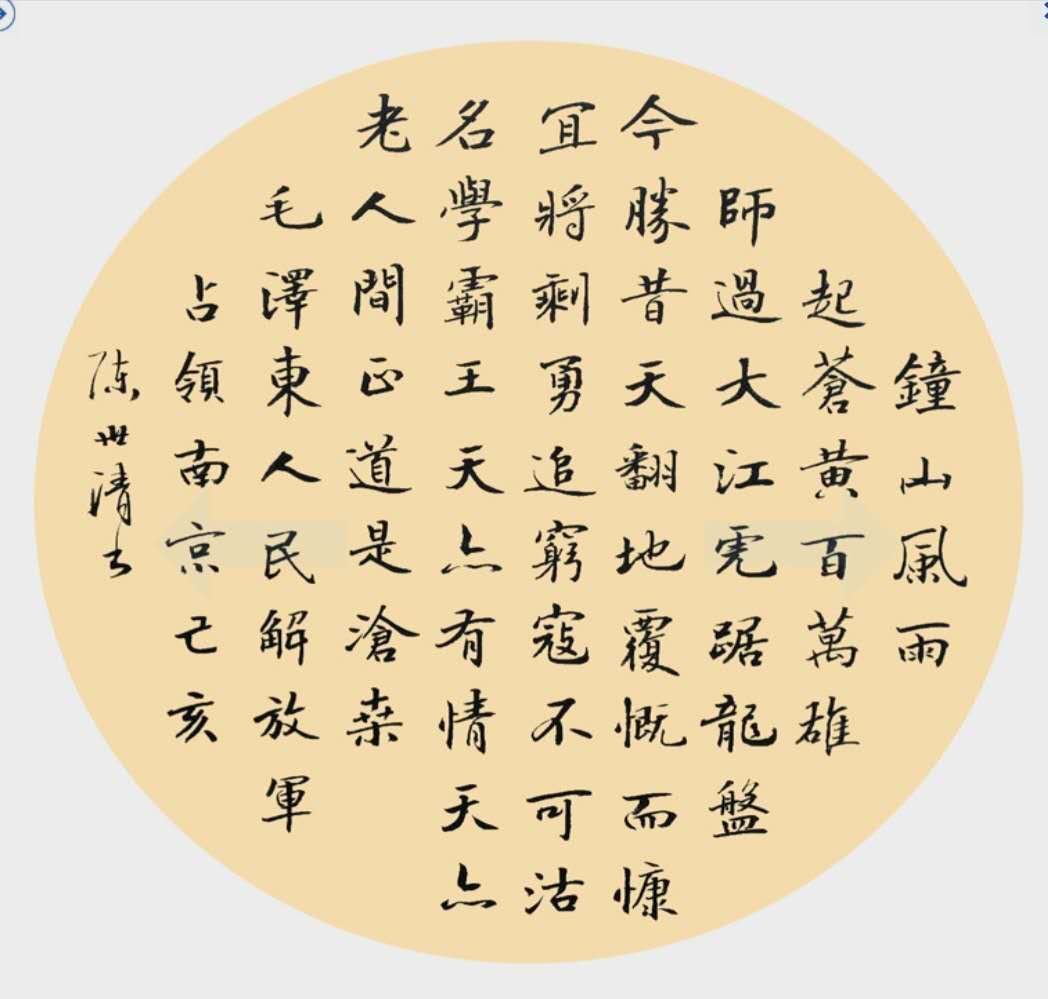 鐘山風雨
起蒼黄百萬雄
師過大江虎踞龍盤
今勝昔天翻地覆慨而慷
宜將剩勇追窮寇不可沽
名學霸王天亦有情天亦
老人間正道是滄桑
毛澤東人民解放軍
占領南京己亥
陈世清书